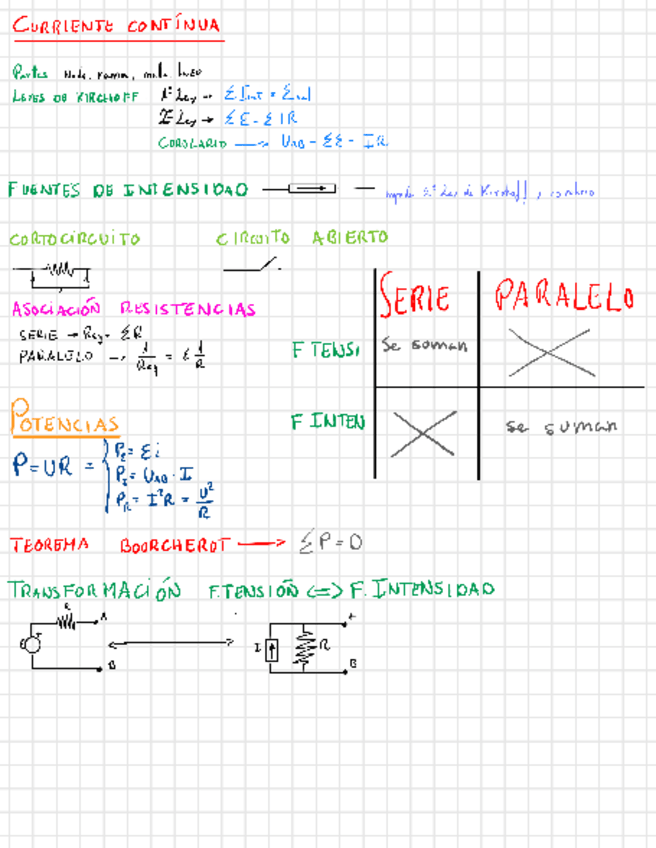 CURRIENTE CONTÍNUA
Partes Nudo, rama, malla, lazo
LEYES DE KIRCHOFF 1ª Ley → ΣIent = Σsal
2ª Ley → ΣE - ΣIR
COROLARIO → UAB - ΣE - IR
FUENTES DE INTENSIDAD — 2ª Ley de Kirchoff
CORTOCIRCUITO CIRCUITO ABIERTO
SERIE PARALELO
ASOCIACIÓN RESISTENCIAS
SERIE → Req - ΣR
PARALELO → 1/Req = Σ 1/R
F TENSI Se suman
F INTEN Se suman
POTENCIAS
P = UR =
PE = Ei
PI = UAB · I
PR = I²R = U²/R
TEOREMA BOORCHEROT → ΣP = 0
TRANSFORMACIÓN F.TENSIÓN <=> F. INTENSIDAD
R A
E B
I R B